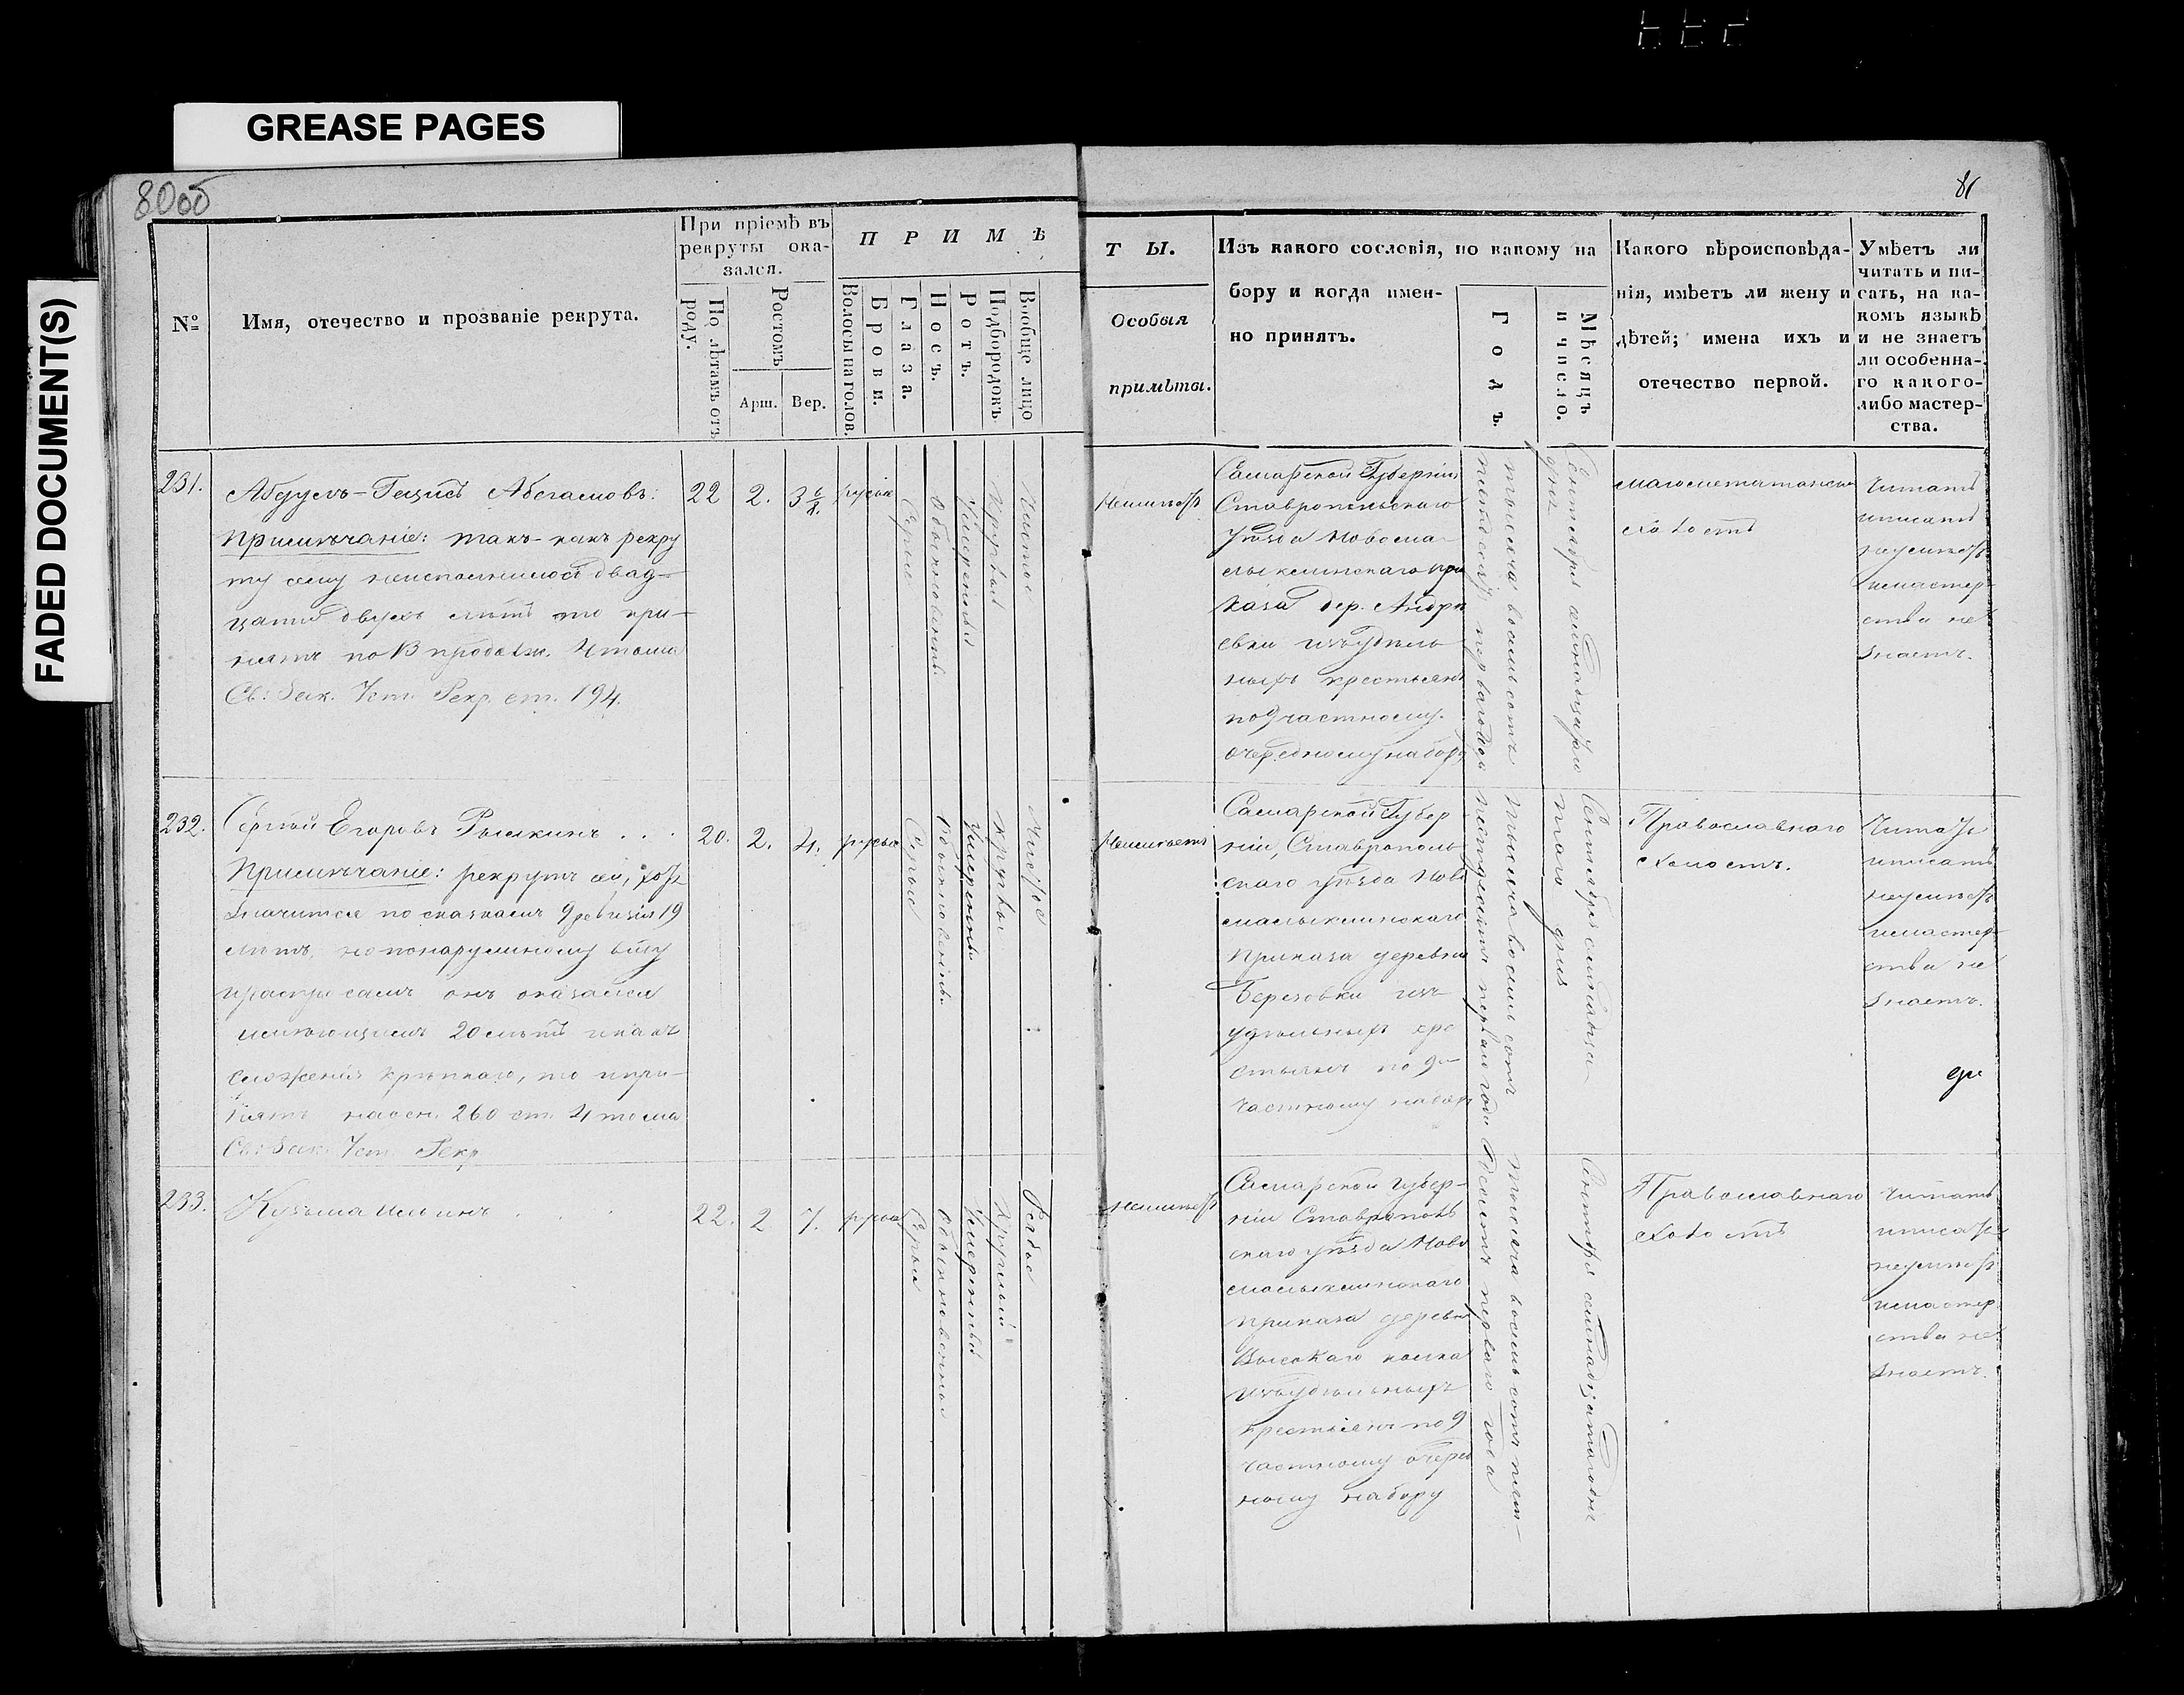 GREASE PAGES
FADED DOCUMENT(S)
80об
81
№
Имя, отечество и прозваніе рекрута.
При пріемѣ въ рекруты оказался.
По лѣтамъ отъ роду.
Ростомъ
Арш.
Вер.
ПРИМѢ
Волосы на голов.
Брови.
Глаза.
Носъ.
Ротъ.
Подбородокъ.
Вообще лицо
ТЫ.
Особыя
примѣты.
Изъ какого сословія, по какому на
бору и когда имен-
но принятъ.
Годъ.
Мѣсяцъ
и число.
Какого вѣроисповѣда-
нія, имѣетъ ли жену и
дѣтей; имена ихъ и
отечество первой.
Умѣетъ ли
читать и пи-
сать, на ка-
комъ языкѣ
и не знаетъ
ли особенна-
го какого-
либо мастер-
ства.
231.
Примѣчаніе: такъ-какъ рекру
ту сему неисполнилось двад-
цати двухъ лѣтъ то при-
нятъ по В продолж. 4 тома
Св: Зак. Уст. Рекр. ст. 194.
22
2.
3 6/8.
русыя
Сѣрые
Обыкновенный
Умѣренный
Круглый
Чистое
Неимѣетъ
Самарской Губерніи
Ставропольскаго
Уѣзда Новома-
лыклинскаго при
каза дер. Андре
евки изъ удѣль
ныхъ крестьянъ
по 9 частному
очередному набору
тысяча восемьсотъ
пятьдесятъ перваго года
Сентября семнадцатаго
дня
магометанскаго
холостъ
Читать
иписать
неумѣетъ
имастер
ства не
знаетъ.
232.
Сергѣй Егоровъ Рышкинъ . . .
Примѣчаніе: рекрутъ сей, хотя
значится по сказкамъ 9 ревизіи 19
лѣтъ, но по наружному виду
и распросамъ онъ оказался
имѣющимъ 20 лѣтъ и какъ
сложенія крѣпкаго, то и при-
нятъ на осн. 260 ст. 4 тома
Св: Зак. Уст. Рекр
20.
2.
4.
русыя
Сѣрые
Обыкновенный
Умѣренный
Круглый
Чистое
Неимѣетъ
Самарской Губер
ніи, Ставрополь
скаго уѣзда Ново
малыклинскаго
приказа деревни
Березовки изъ
удѣльныхъ кре
стьянъ по 9й
частному набору
тысяча восемьсотъ
пятьдесятъ перваго года
Сентября семнадца-
таго дня
Православнаго
холостъ.
Читать
иписать
неумѣетъ
имастер-
ства не
знаетъ.
233.
Кузьма Ильинъ . . .
22.
2
7.
русые
Сѣрые
Обыкновенный
Умѣренный
Круглый
Рябое
Неимѣетъ
Самарской Губер-
ніи Ставрополь
скаго уѣзда Ново
малыклинскаго
приказа деревни
Высокаго колка
изъ удѣльныхъ
крестьянъ по 9
частному очеред
ному набору
тысяча восемьсотъ пять-
десятъ перваго года
Сентября семнадцатаго дня
Православнаго
холостъ
Читать
иписать
неумѣетъ
имастер
ства не
знаетъ.